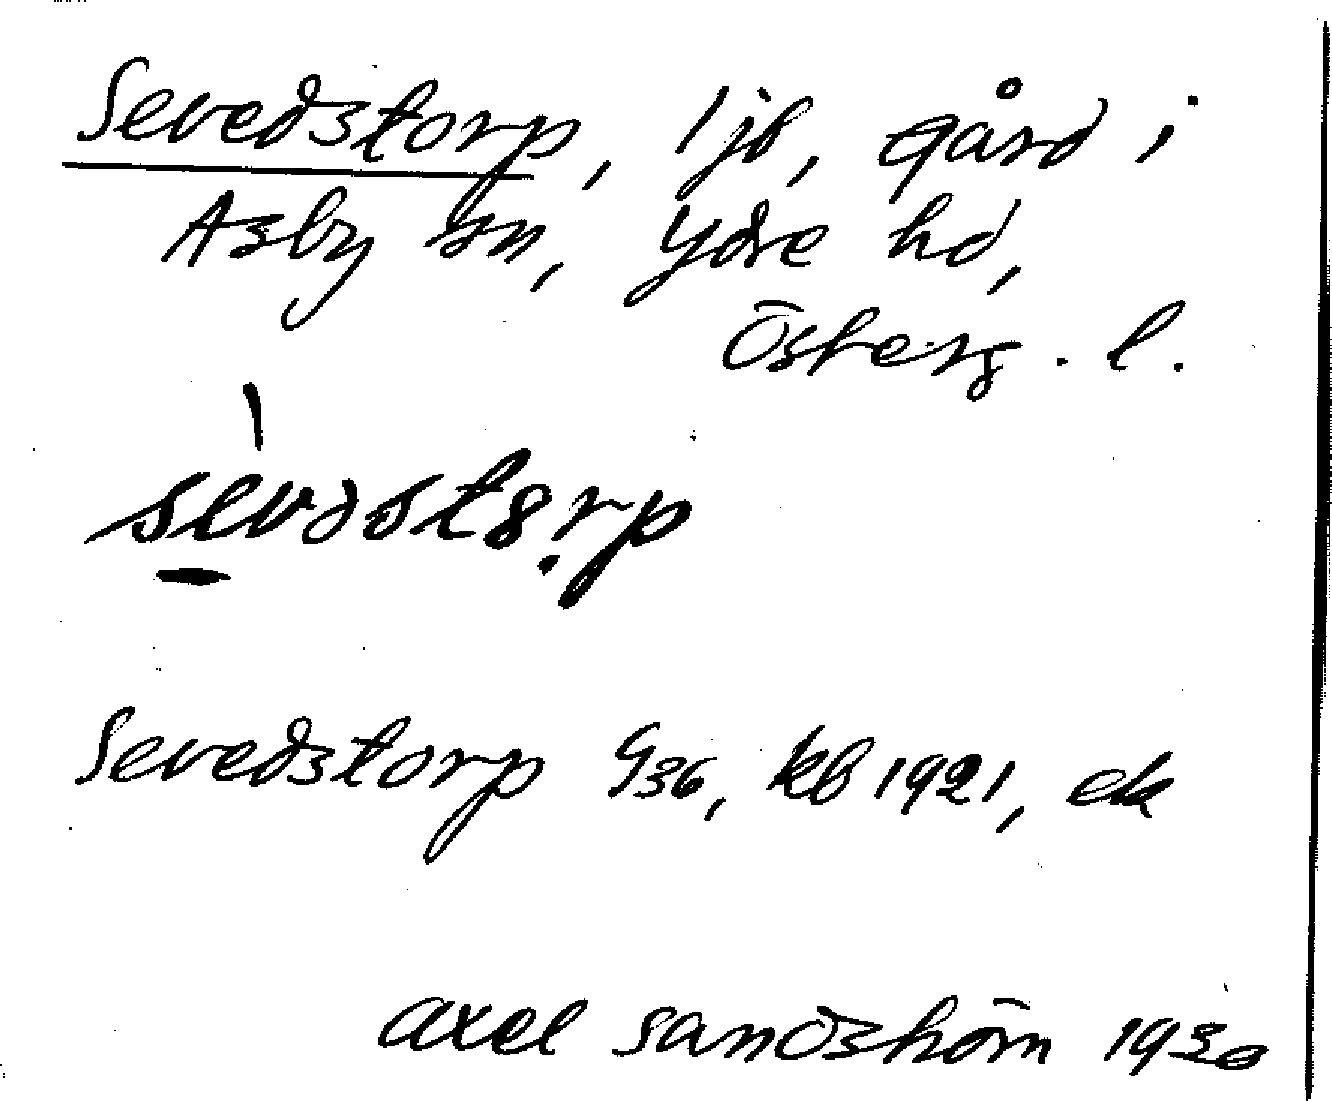 Sevedstorp, 1 jb, gård i
Asby sn, Ydre hd,
Österg. l.
sèvəstȣ.rp
Sevedstorp G36, kb 1921, ek
axel sandshörn 1930